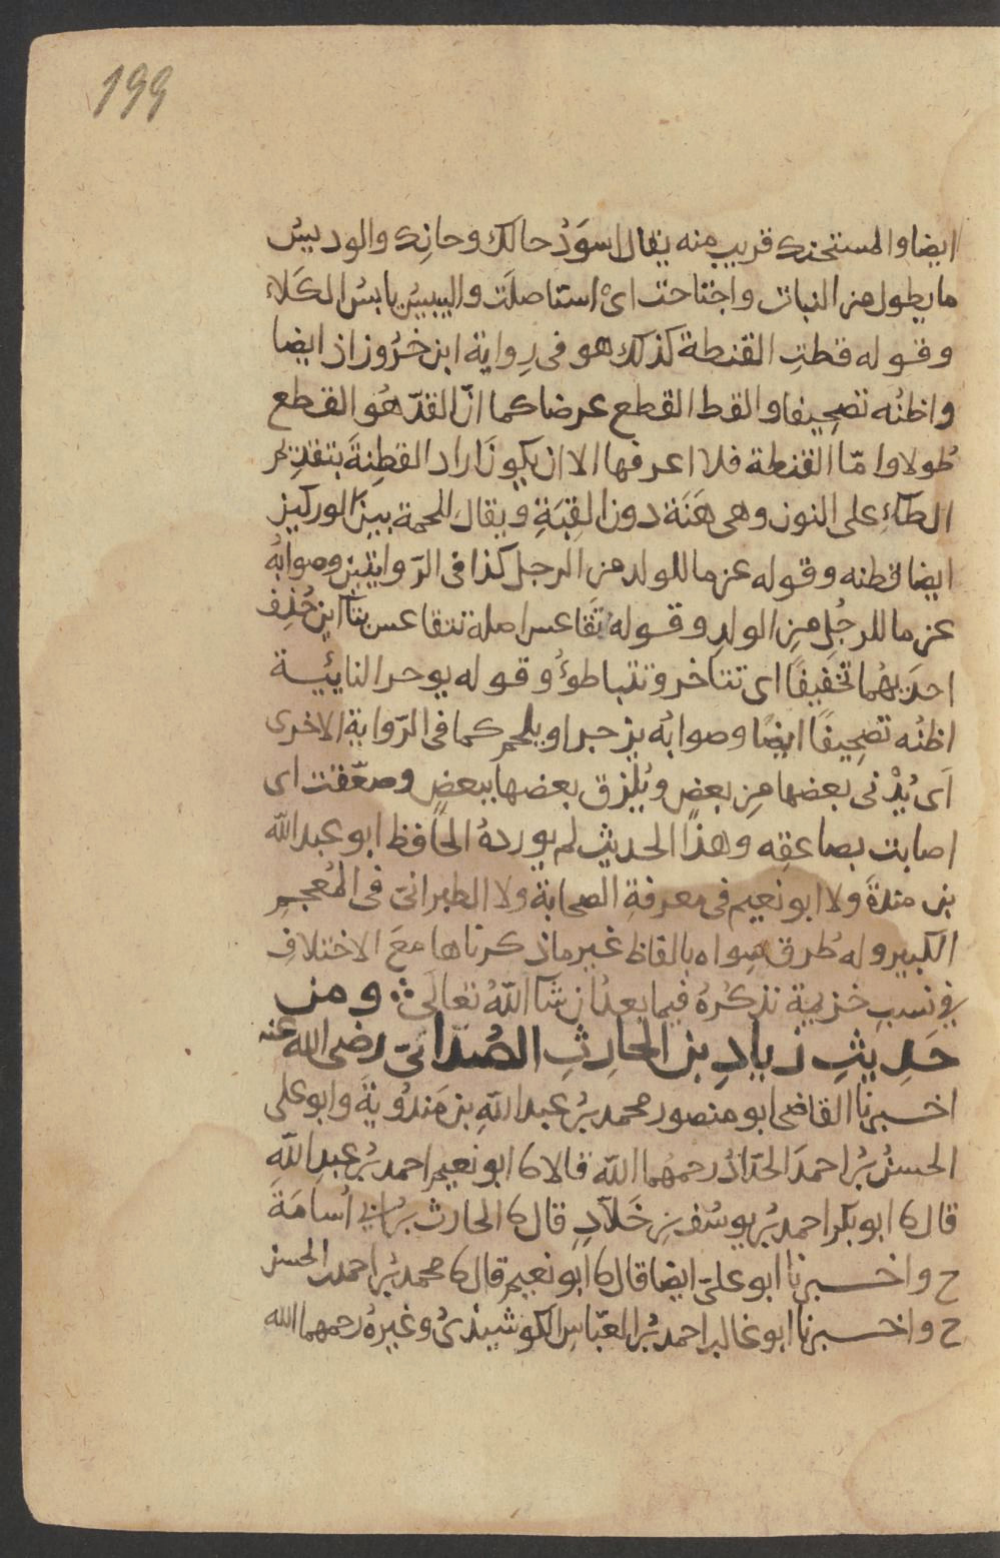 199
ايضا والمستحنك قريب منه يقال اسوَدُ حالك وحانِك والوديسُ
ما يطول من النبات واجتاحت اىْ استاصلَت واليبيسُ يابسُ الكَلاء
وقوله قطتِ القنطة كذلك هو فى رِواية ابن خرُوزاذ ايضا
واظنُه تصحِيفا والقط القطع عرضا كما انّ القدّ هُو القطع
طُولا وامّا القنطة فلا اعرفها الا ان يكونَ اراد القطِنةَ بتقديم
الطآءِ على النون وهى هَنَة دون القِبَةِ ويقال للحمة بينَ الوركين
ايضا قطنه وقوله عن ما للولد من الرجل كذا فى الرّوايتين وصوابُهُ
عن ما للرجُلِ مِن الولدِ وقوله تقَاعس اصله تتقاعس بتآاين حُذِف
احدَيهُما تخفيفًا اى تتاخر وتتباطؤُ وقوله يوحر النايئِية
اظنُه تصحِيفًا ايضًا وصوابُه يزحبر او يلحم كما فى الرّواية الاخرى
اَى يُدْنى بعضها مِن بعضٍ ويُلْزق بعضها ببعضٍ وصعّقت اى
اصابت بصاعقِه وهذا الحديث لم يوردهُ الحافظ ابو عبد الله
بن مندةَ ولا ابو نعيم فى معرفةِ الصحابة ولا الطبرانىّ فى المُعجمِ
الكبير وله طُرق سِواه بالفاظ غير ما ذكرناها معَ الاختلافِ
فى نسبِ خزيمة نذكُرهُ فيما بعدُ ان شآ اللّهُ تعالَى ∴ ومن
حَدِيثِ زيادِ بن الحارِثِ الصُدَائىّ رضى الله عنه
اخبرنا القاضى ابو منصور محمد بنُ عبد اللّهِ بن مَندُويةَ وابو على
الحسنُ بنُ احمدَ الحدّادُ رحمهُما اللّه قالا ڪا ابو نعيم احمد بنُ عبدِ اللّهِ
قال ڪا ابو بكر احمد بنُ يوسُف بن خَلاّدِ قال ڪا الحارث بنُ ابى اُسامَةَ
ح واخبرنا ابو علىّ ايضا قال ڪا ابو نعيم قال ڪا محمد بنُ احمد بن الحسن
ح واخبرنا ابو غالب احمد بنُ العبّاسِ الكوشيذىُّ وغيرهُ رحمهما الله